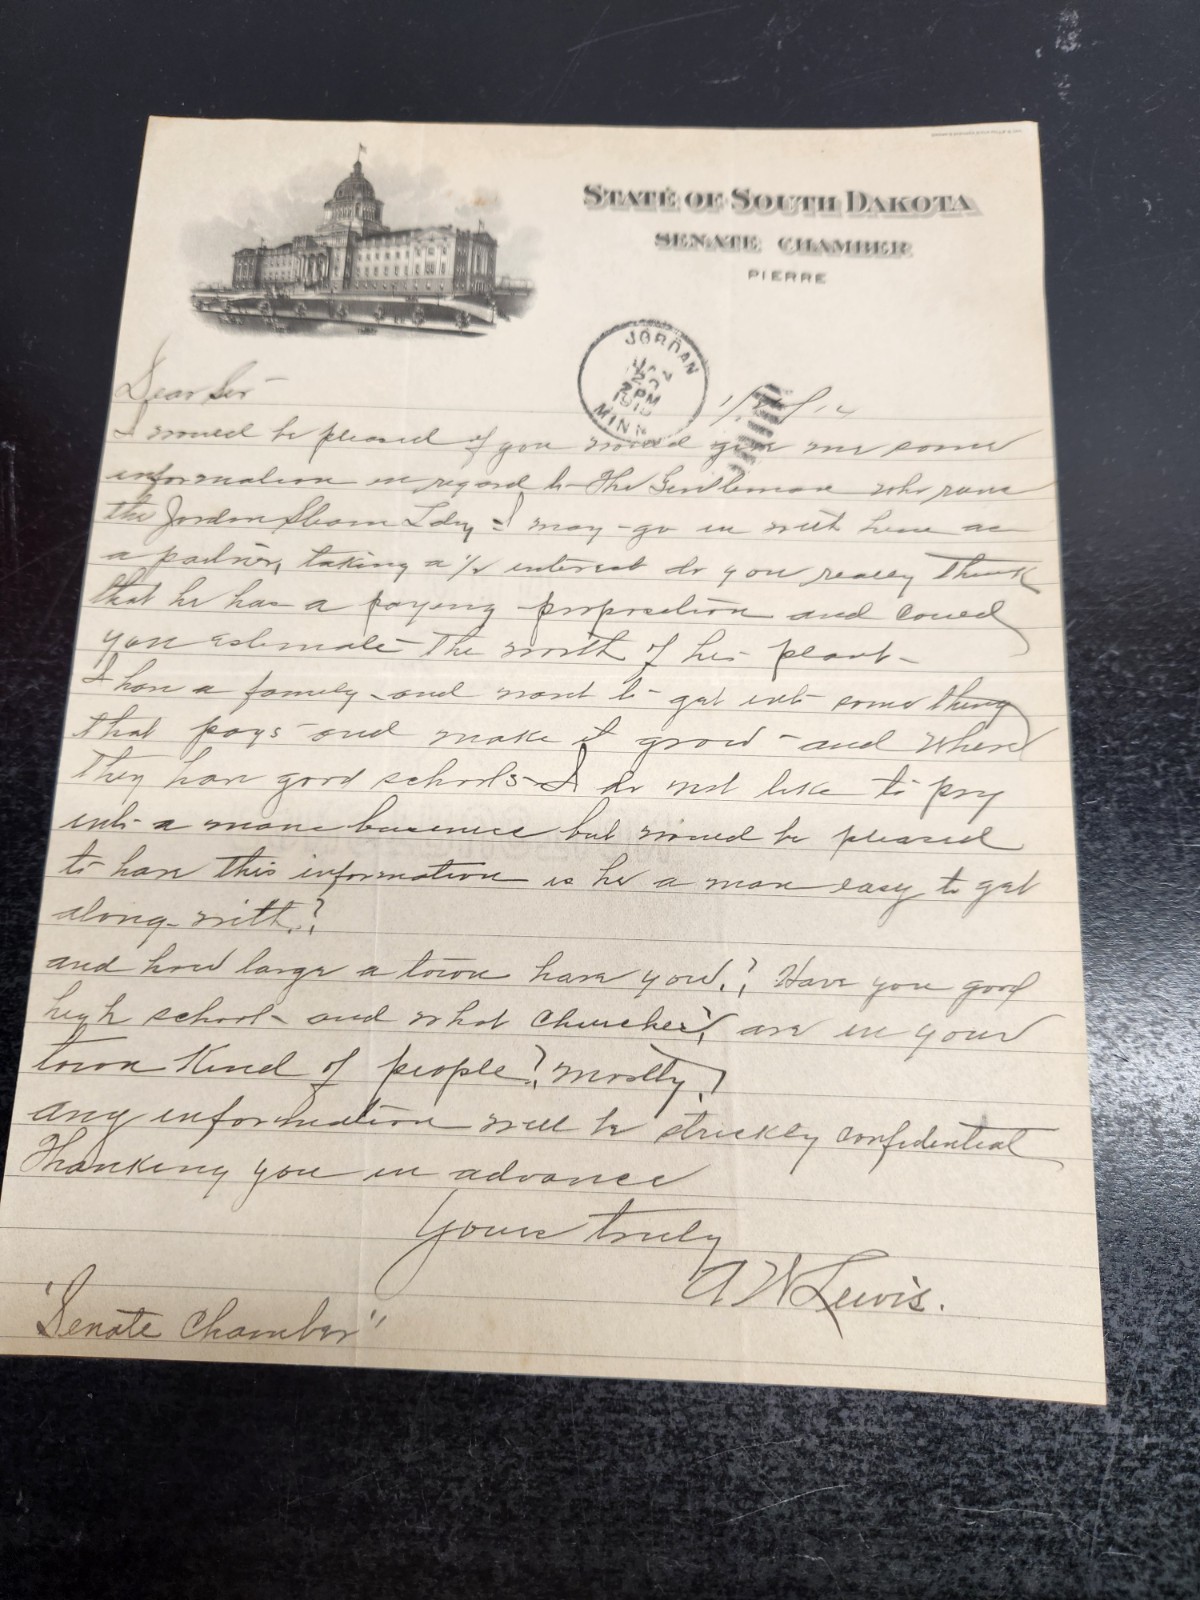 STATE OF SOUTH DAKOTA
SENATE CHAMBER
PIERRE
JORDAN
JAN
20
2 PM
MINN
Dear Sir —
I would be pleased if you would give me some
information in regard to The Gentleman who runs
the Jordan Steam Ldry — I may go in with him as
a partner, taking a ½ interest do you really Think
that he has a paying proposition and could
you estimate The worth of his plant —
I have a family and want to get into something
that pays and make it grow — and where
they have good schools — I do not like to pry
into a mans business but would be pleased
to have this information is he a man easy to get
along with?
and how large a town have you? Have you good
high school — and what Churches? are in your
town Kind of people? mostly?
Any information will be strickly confidential
Thanking you in advance
Yours truly
A W Lewis.
"Senate Chamber"